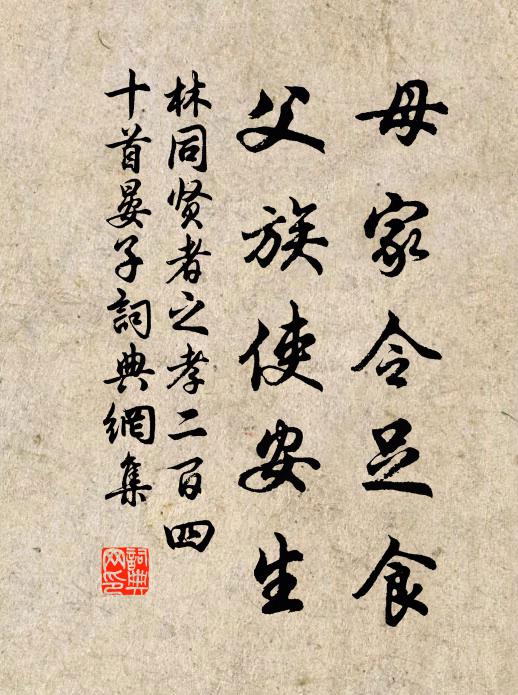 母家令足食
父族使安生
林同贤者之孝二百四
十首晏子詞典網集
詞典网印